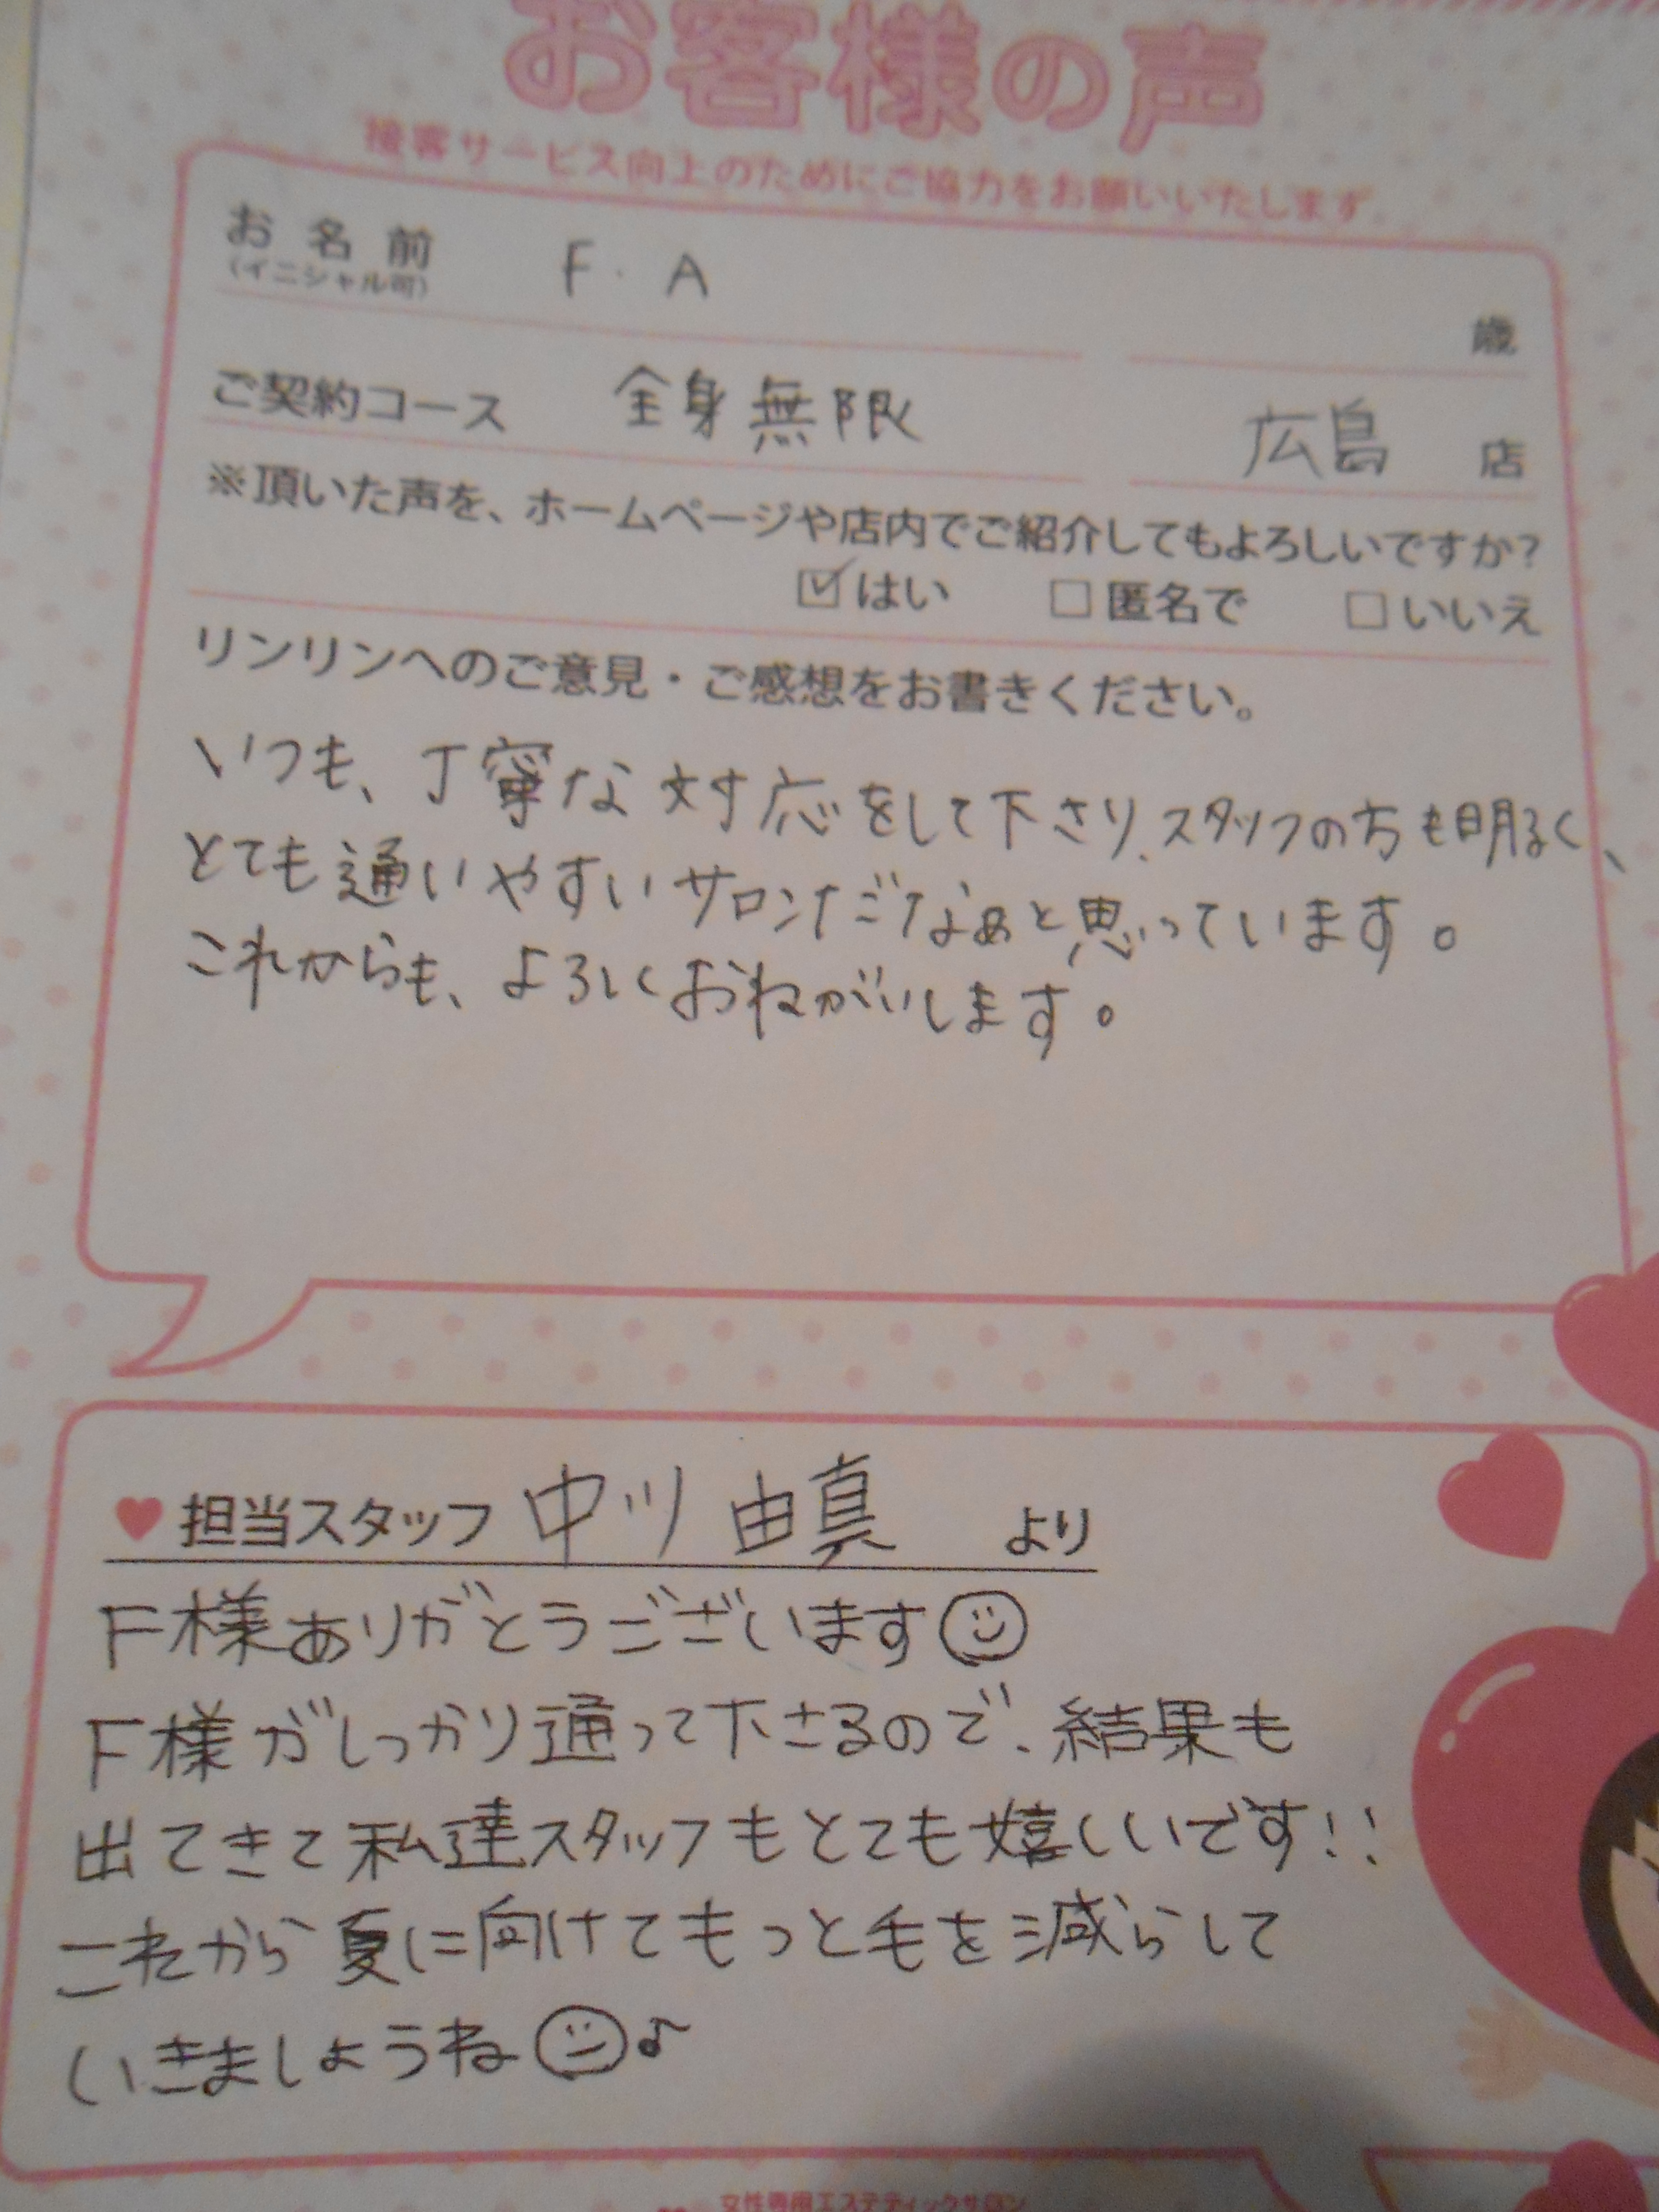 お客様の声
接客サービス向上のためにご協力をお願いいたします
お名前 F.A
(イニシャル可)
歳
ご契約コース 全身無限 広島 店
※頂いた声を、ホームページや店内でご紹介してもよろしいですか?
☑はい □匿名で □いいえ
リンリンへのご意見・ご感想をお書きください。
いつも、丁寧な対応をして下さり、スタッフの方も明るく、
とても通いやすいサロンだなぁと思っています。
これからも、よろしくおねがいします。
♥担当スタッフ 中川 由真 より
F様ありがとうございます☺
F様がしっかり通って下さるので、結果も
出てきて私達スタッフもとても嬉しいです!!
これから夏に向けてもっと毛を減らして
いきましょうね☺♪
女性専用エステティックサロン